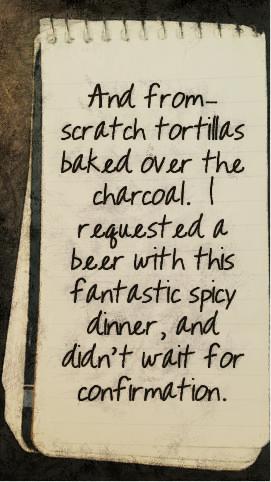 And from-
scratch tortillas
baked over the
charcoal. I
requested a
beer with this
fantastic spicy
dinner, and
didn't wait for
confirmation.